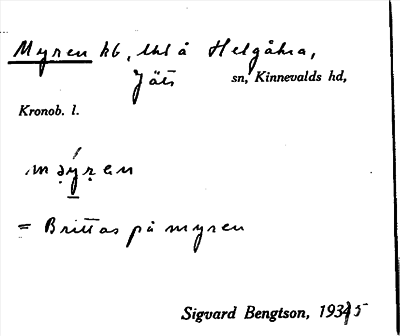 Myren kb, lht å Helgåkra,
Jäts sn, Kinnevalds hd,
Kronob. l.
= Brittas på myren
Sigvard Bengtson, 1935